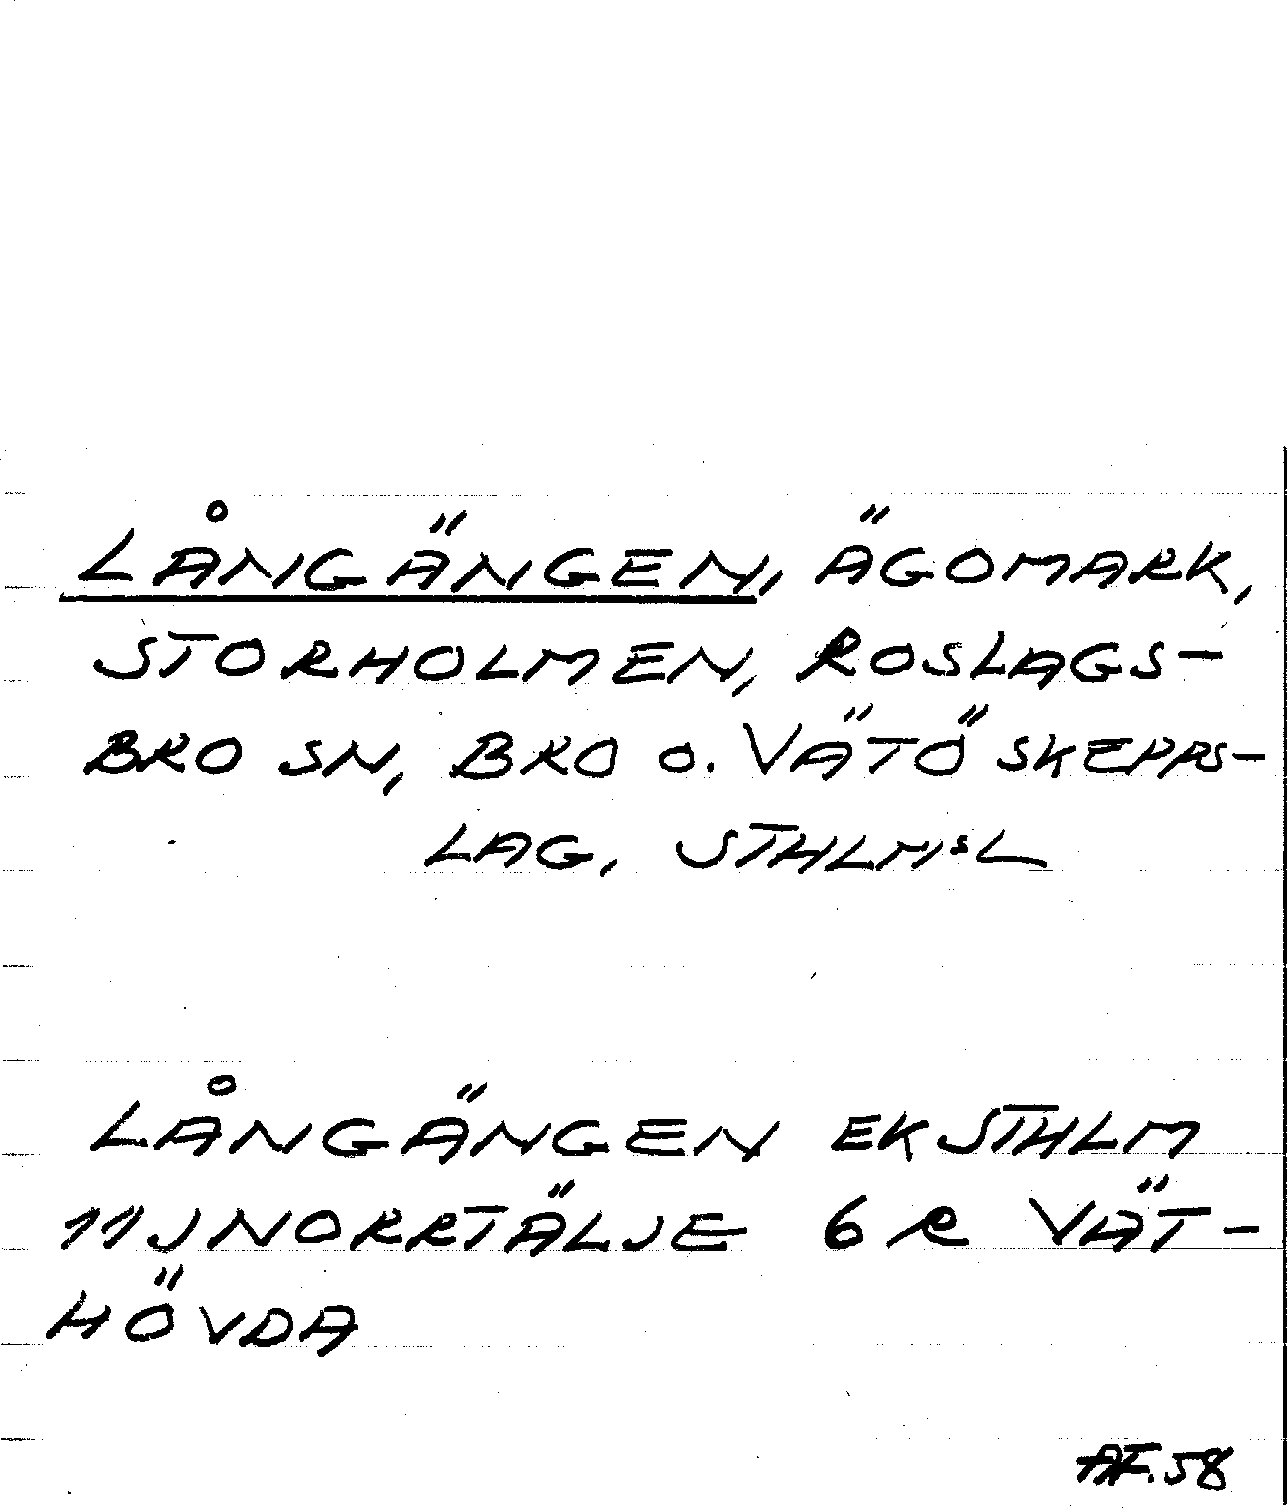 LÅNGÄNGEN, ÄGOMARK,
STORHOLMEN, ROSLAGS-
BRO SN, BRO O. VÄTÖ SKEPPS-
LAG, STHLMSL
LÅNGÄNGEN EK STHLM
11J NORRTÄLJE 6 R VÄT-
HÖVDA
AF.58